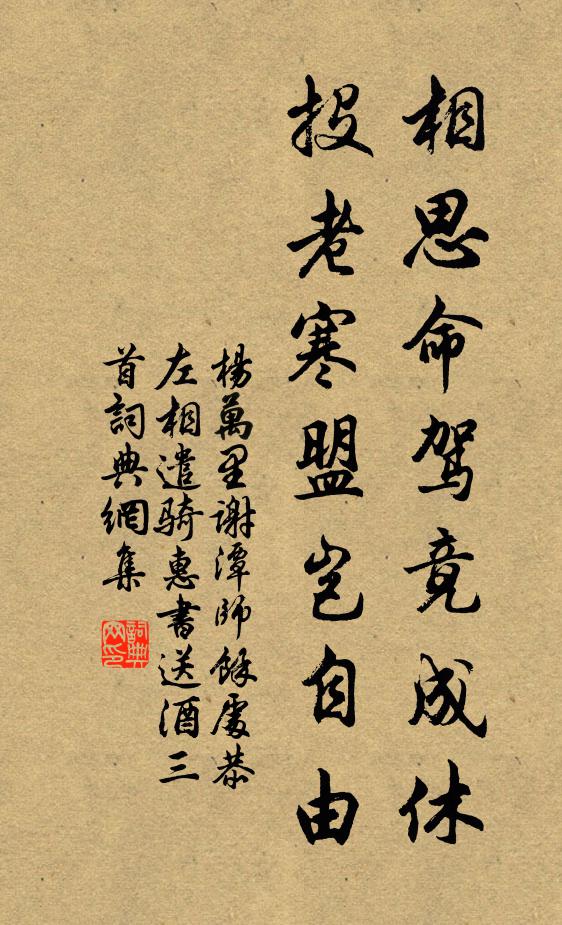 相思命駕竟成休
投老寒盟豈自由
楊萬里謝潭師餘處恭
左相遣騎惠書送酒三
首詞典網集
詞典網印